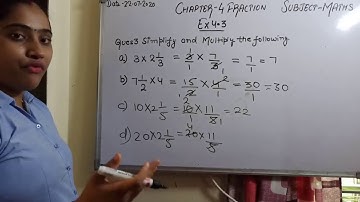 Date-22-07-2020 Chapter-4 Fraction Subject-Maths
Ex 4.3
Ques3 Simplify and Multiply the following
a) 3 x 2 1/3 = 3/1 x 7/3 = 7/1 = 7
b) 7 1/2 x 4 = 15/2 x 4/1 = 30/1 = 30
c) 10 x 2 1/5 = 10/1 x 11/5 = 22
d) 20 x 2 1/5 = 20 x 11/5